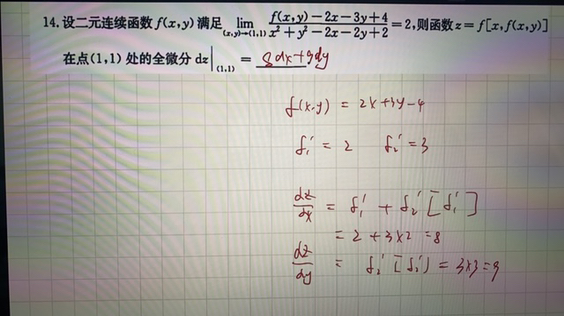 14. 设二元连续函数 f(x,y) 满足 lim_{(x,y)→(1,1)} \frac{f(x,y)-2x-3y+4}{x²+y²-2x-2y+2} = 2, 则函数 z = f[x, f(x,y)]
在点(1,1) 处的全微分 dz|_{(1,1)} = 8dx+9dy
f(x,y) = 2x+3y-4
f₁' = 2 f₂' = 3
\frac{dz}{dx} = f₁' + f₂' [f₁']
= 2 + 3×2 = 8
\frac{dz}{dy} = f₂' [f₂'] = 3×3 = 9